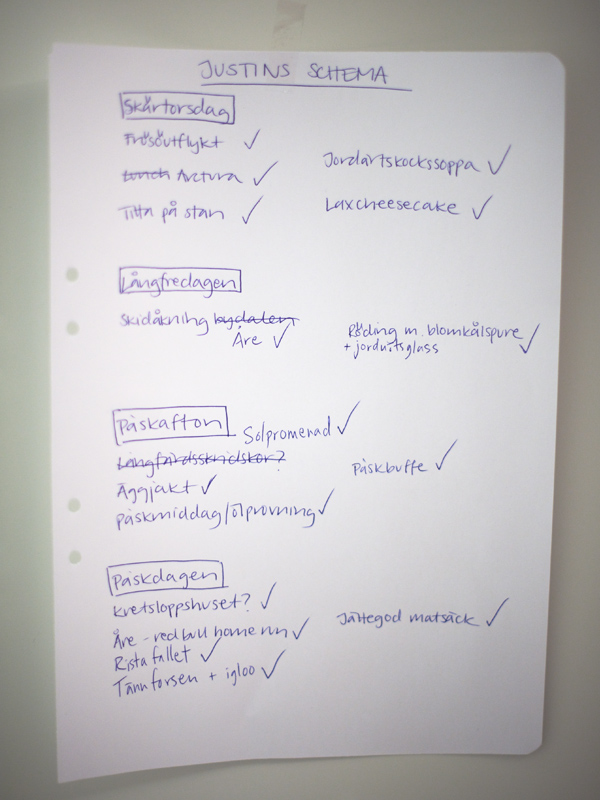 JUSTINS SCHEMA
Skärtorsdag
Frösöutflykt ✓
Jordärtskockssoppa ✓
Lunch Arctura ✓
Titta på stan ✓
Laxcheesecake ✓
Långfredagen
Skidåkning bydalen
Åre ✓
Röding m. blomkålspure ✓
+ jordnötsglass
Påskafton
Solpromenad ✓
Långfärdsskridskor?
Påskbuffe ✓
Äggjakt ✓
påskmiddag/ölprovning ✓
Påskdagen
kretsloppshuset? ✓
Jättegod matsäck ✓
Åre - red bull home run ✓
Ristafallet ✓
Tännforsen + igloo ✓